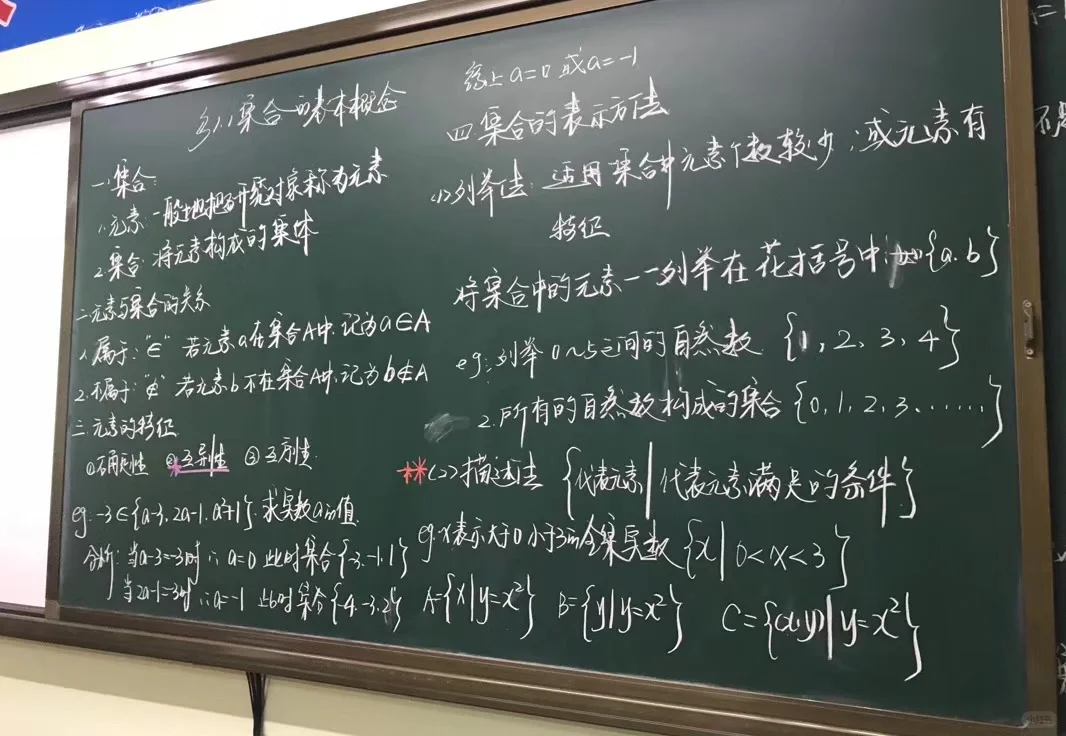 §1.1集合的基本概念
一.集合:
1.元素:一般地把研究对象称为元素
2.集合:将元素构成的集体
二.元素与集合的关系
1.属于:"∈" 若元素a在集合A中,记为a∈A
2.不属于:"∉" 若元素b不在集合A中,记为b∉A
三.元素的特征
①确定性 ②互异性 ③无序性
eg:-3∈{a-3,2a-1,a²+1},求实数a的值
分析:当a-3=-3时∴a=0 此时集合{-3,-1,1}
当2a-1=-3时∴a=-1 此时集合{-4,-3,2}
综上a=0或a=-1
四.集合的表示方法
(1)列举法:适用集合中元素个数较少,或元素有
特征
将集合中的元素一一列举在花括号中,如{a.b}
eg:列举0~5之间的自然数 {1,2,3,4}
2.所有的自然数构成的集合{0,1,2,3......}
**(2)描述法 {代表元素|代表元素满足的条件}
eg:x表示大于0小于3的全集实数{x|0<x<3}
A={x|y=x²} B={y|y=x²} C={(x,y)|y=x²}